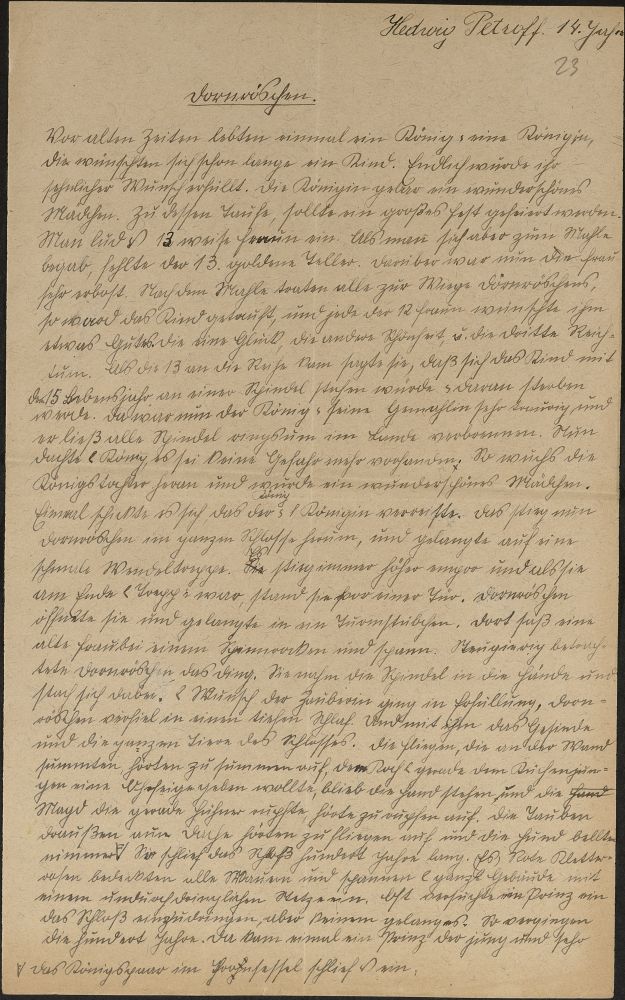 Hedwig Petroff. 14. Jahre
23
Dornröschen.
Vor alten Zeiten lebten einmal ein König & eine Königin,
die wünschten sich schon lange ein Kind. Endlich wurde ihr
sehnlicher Wunsch erhüllt. Die Königin gebar ein wunderschönes
Mädchen. Zu dessen Taufe, sollte ein großes Fest gefeiert werden.
Man lud 13 weise Frauen ein. Als man sich aber zum Mahle
begab, fehlte der 13. goldene Teller. Darüber war nun die Frau
sehr erbost. Nach dem Mahle traten alle zur Wiege Dornröschens,
so ward das Kind getauft, und jede der 12 Frauen wünschte ihm
etwas Gutes. Die eine Glück, die andere Schönheit, u. die dritte Reich-
tum. Als die 13 an die Reihe kam sagte sie, daß sich das Kind mit
15 Lebensjahr an einer Spindel stechen würde & daran sterben
werde. Da war nun der König & seine Gemahlin sehr traurig, und
er ließ alle Spindel ringsum im Lande verbrennen. Nun
dachte König es sei keine Gefahr mehr vorhanden. So wuchs die
Königstochter heran und wurde ein wunderschönes Mädchen.
König
Einmal schickte es sich, das der & Königin verreiste. Das stieg nun
Dornröschen im ganzen Schlosse herum, und gelangte auf eine
schmale Wendeltreppe. stieg immer höher empor und als sie
am Ende Treppe war, stand sie vor einer Tür. Dornröschen
öffnete sie und gelangte in ein Turmstübchen. Dort saß eine
alte Frau bei einem Spinnrocken und spann. Neugierig betrach-
tete Dornröschen das Ding. Sie nahm die Spindel in die Hände und
stach sich dabei. Wunsch der Zauberin ging in Erfüllung, Dorn-
röschen verfiel in einen tiefen Schlaf. Und mit ihm das Gesinde
und die ganzen Tiere des Schlosses. Die Fliegen, die an der Wand
summten hörten zu summen auf, dem Koch gerade dem Küchenjun-
gen eine Ohrfeige geben wollte, blieb die Hand stehen, und die Hand
Magd die gerade Hühner rupfte, hörte zu rupfen auf. Die Tauben
draußen am Dache hörten zu fliegen auf und die Hund bellten
nimmer. So schlief das Schloß hundert Jahre lang. Es Rote Kletter-
rosen bedeckten alle Mauern und spannen ganze Gebäude mit
einem undurchdringlichen Netze ein. Oft versuchte ein Prinz in
das Schloß einzudringen, aber keinem gelang es. So vergingen
die hundert Jahre. Da kam einmal ein Prinz der jung und sehr
das Königspaar im schlief ein.